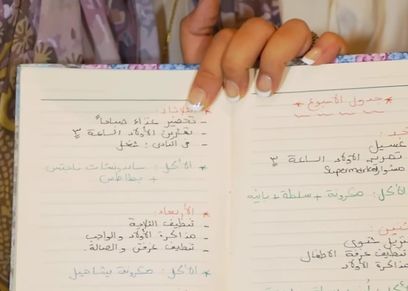 * جدول الأسبوع *
غسيل
تمرين الأولاد الساعة ٣
مشوار Supermarket
الأكل: مكرونة + سلطة + بانيه
تنزيل شتوي
تنظيف غرفة الأطفال
مذاكرة الأولاد
الثلاثاء:
- تحضير غداء صباحاً
- تمارين الأولاد الساعة ٣
- في النادي: شغل
* الأكل: ساندويتشات ناجتس
+ بطاطس
* الأربعاء:
- تنظيف الثلاجة
- مذاكرة الأولاد والواجب
- تنظيف غرفتي والصالة.
* الأكل: مكرونة بشاميل